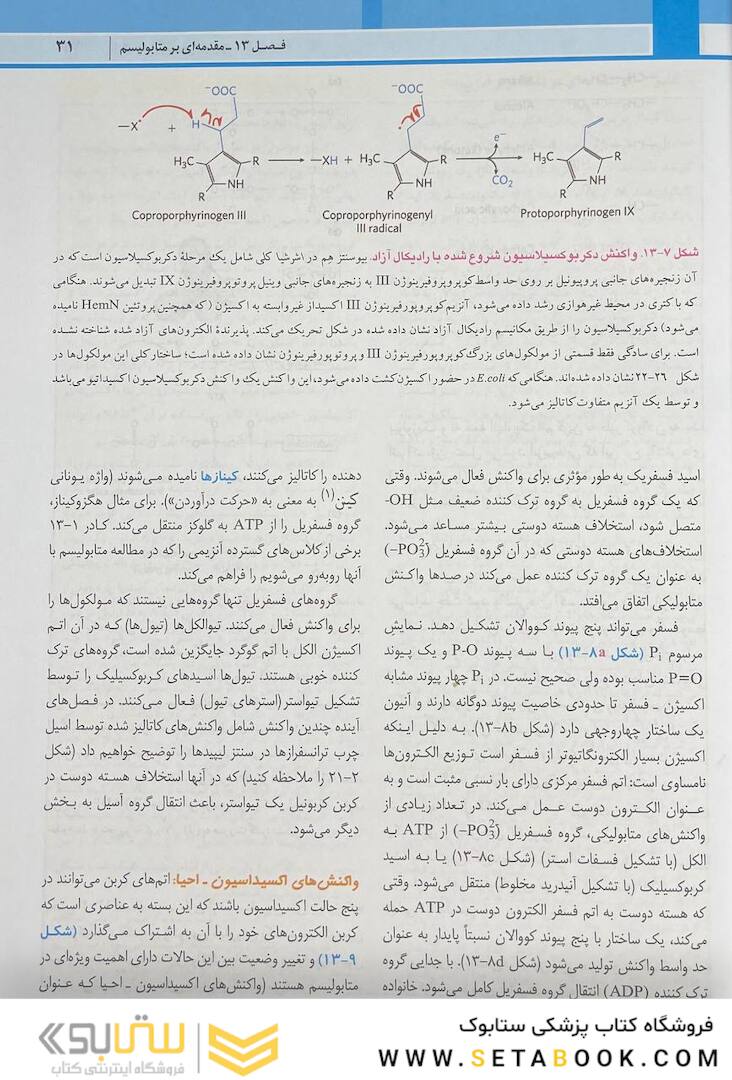 فصل ۱۳ ـ مقدمه‌ای بر متابولیسم
۳۱
⁻OOC
⁻OOC
—X• + H
e⁻
H₃C R —XH + H₃C R H₃C R
CO₂
NH NH NH
R R R
Coproporphyrinogen III
Coproporphyrinogenyl
III radical
Protoporphyrinogen IX
شکل ۷-۱۳. واکنش دکربوکسیلاسیون شروع شده با رادیکال آزاد. بیوسنتز هِم در اشرشیا کلی شامل یک مرحلهٔ دکربوکسیلاسیون است که در
آن زنجیره‌های جانبی پروپیونیل بر روی حد واسط کوپروپورفیرینوژن III به زنجیره‌های جانبی وینیل پروتوپورفیرینوژن IX تبدیل می‌شوند. هنگامی
که باکتری در محیط غیرهوازی رشد داده می‌شود، آنزیم کوپروپورفیرینوژن III اکسیداز غیروابسته به اکسیژن (که همچنین پروتئین HemN نامیده
می‌شود) دکربوکسیلاسیون را از طریق مکانیسم رادیکال آزاد نشان داده شده در شکل تحریک می‌کند. پذیرندهٔ الکترون‌های آزاد شده شناخته نشده
است. برای سادگی فقط قسمتی از مولکول‌های بزرگ کوپروپورفیرینوژن III و پروتوپورفیرینوژن نشان داده شده است؛ ساختار کلی این مولکول‌ها در
شکل ۲۶-۲۲ نشان داده شده‌اند. هنگامی که E.coli در حضور اکسیژن کشت داده می‌شود، این واکنش یک واکنش دکربوکسیلاسیون اکسیداتیو می‌باشد
و توسط یک آنزیم متفاوت کاتالیز می‌شود.
اسید فسفریک به طور مؤثری برای واکنش فعال می‌شوند. وقتی
که یک گروه فسفریل به گروه ترک کننده ضعیف مثل OH-
متصل شود، استخلاف هسته دوستی بیشتر مساعد می‌شود.
استخلاف‌های هسته دوستی که در آن گروه فسفریل (–PO₃²⁻)
به عنوان یک گروه ترک کننده عمل می‌کند در صدها واکنش
متابولیکی اتفاق می‌افتد.
فسفر می‌تواند پنج پیوند کووالان تشکیل دهد. نمایش
مرسوم Pᵢ (شکل ۱۳-۸a) با سه پیوند P-O و یک پیوند
P=O مناسب بوده ولی صحیح نیست. در Pᵢ چهار پیوند مشابه
اکسیژن ـ فسفر تا حدودی خاصیت پیوند دوگانه دارند و آنیون
یک ساختار چهاروجهی دارد (شکل ۱۳-۸b). به دلیل اینکه
اکسیژن بسیار الکترونگاتیوتر از فسفر است توزیع الکترون‌ها
نامساوی است: اتم فسفر مرکزی دارای بار نسبی مثبت است و به
عنوان الکترون دوست عمل می‌کند. در تعداد زیادی از
واکنش‌های متابولیکی، گروه فسفریل (–PO₃²⁻) از ATP به
الکل (با تشکیل فسفات استر) (شکل ۱۳-۸c) یا به اسید
کربوکسیلیک (با تشکیل آنیدرید مخلوط) منتقل می‌شود. وقتی
که هسته دوست به اتم فسفر الکترون دوست در ATP حمله
می‌کند، یک ساختار با پنج پیوند کووالان نسبتاً پایدار به عنوان
حد واسط واکنش تولید می‌شود (شکل ۱۳-۸d). با جدایی گروه
ترک کننده (ADP) انتقال گروه فسفریل کامل می‌شود. خانواده
دهنده را کاتالیز می‌کنند، کینازها نامیده می‌شوند (واژه یونانی
کینن(۱) به معنی به «حرکت درآوردن»). برای مثال هگزوکیناز،
گروه فسفریل را از ATP به گلوکز منتقل می‌کند. کادر ۱-۱۳
برخی از کلاس‌های گسترده آنزیمی را که در مطالعه متابولیسم با
آنها روبه‌رو می‌شویم را فراهم می‌کند.
گروه‌های فسفریل تنها گروه‌هایی نیستند که مولکول‌ها را
برای واکنش فعال می‌کنند. تیوالکل‌ها (تیول‌ها) که در آن اتم
اکسیژن الکل با اتم گوگرد جایگزین شده است، گروه‌های ترک
کننده خوبی هستند. تیول‌ها اسیدهای کربوکسیلیک را توسط
تشکیل تیواستر (استرهای تیول) فعال می‌کنند. در فصل‌های
آینده چندین واکنش شامل واکنش‌های کاتالیز شده توسط اسیل
چرب ترانسفرازها در سنتز لیپیدها را توضیح خواهیم داد (شکل
۲-۲۱ را ملاحظه کنید) که در آنها استخلاف هسته دوست در
کربن کربونیل یک تیواستر، باعث انتقال گروه آسیل به بخش
دیگر می‌شود.
واکنش‌های اکسیداسیون ـ احیا: اتم‌های کربن می‌توانند در
پنج حالت اکسیداسیون باشند که این بسته به عناصری است که
کربن الکترون‌های خود را با آن به اشتراک می‌گذارد (شکل
۹-۱۳) و تغییر وضعیت بین این حالات دارای اهمیت ویژه‌ای در
متابولیسم هستند (واکنش‌های اکسیداسیون ـ احیا که عنوان
فروشگاه کتاب پزشکی ستابوک
WWW.SETABOOK.COM
ستابوک
فروشگاه اینترنتی کتاب